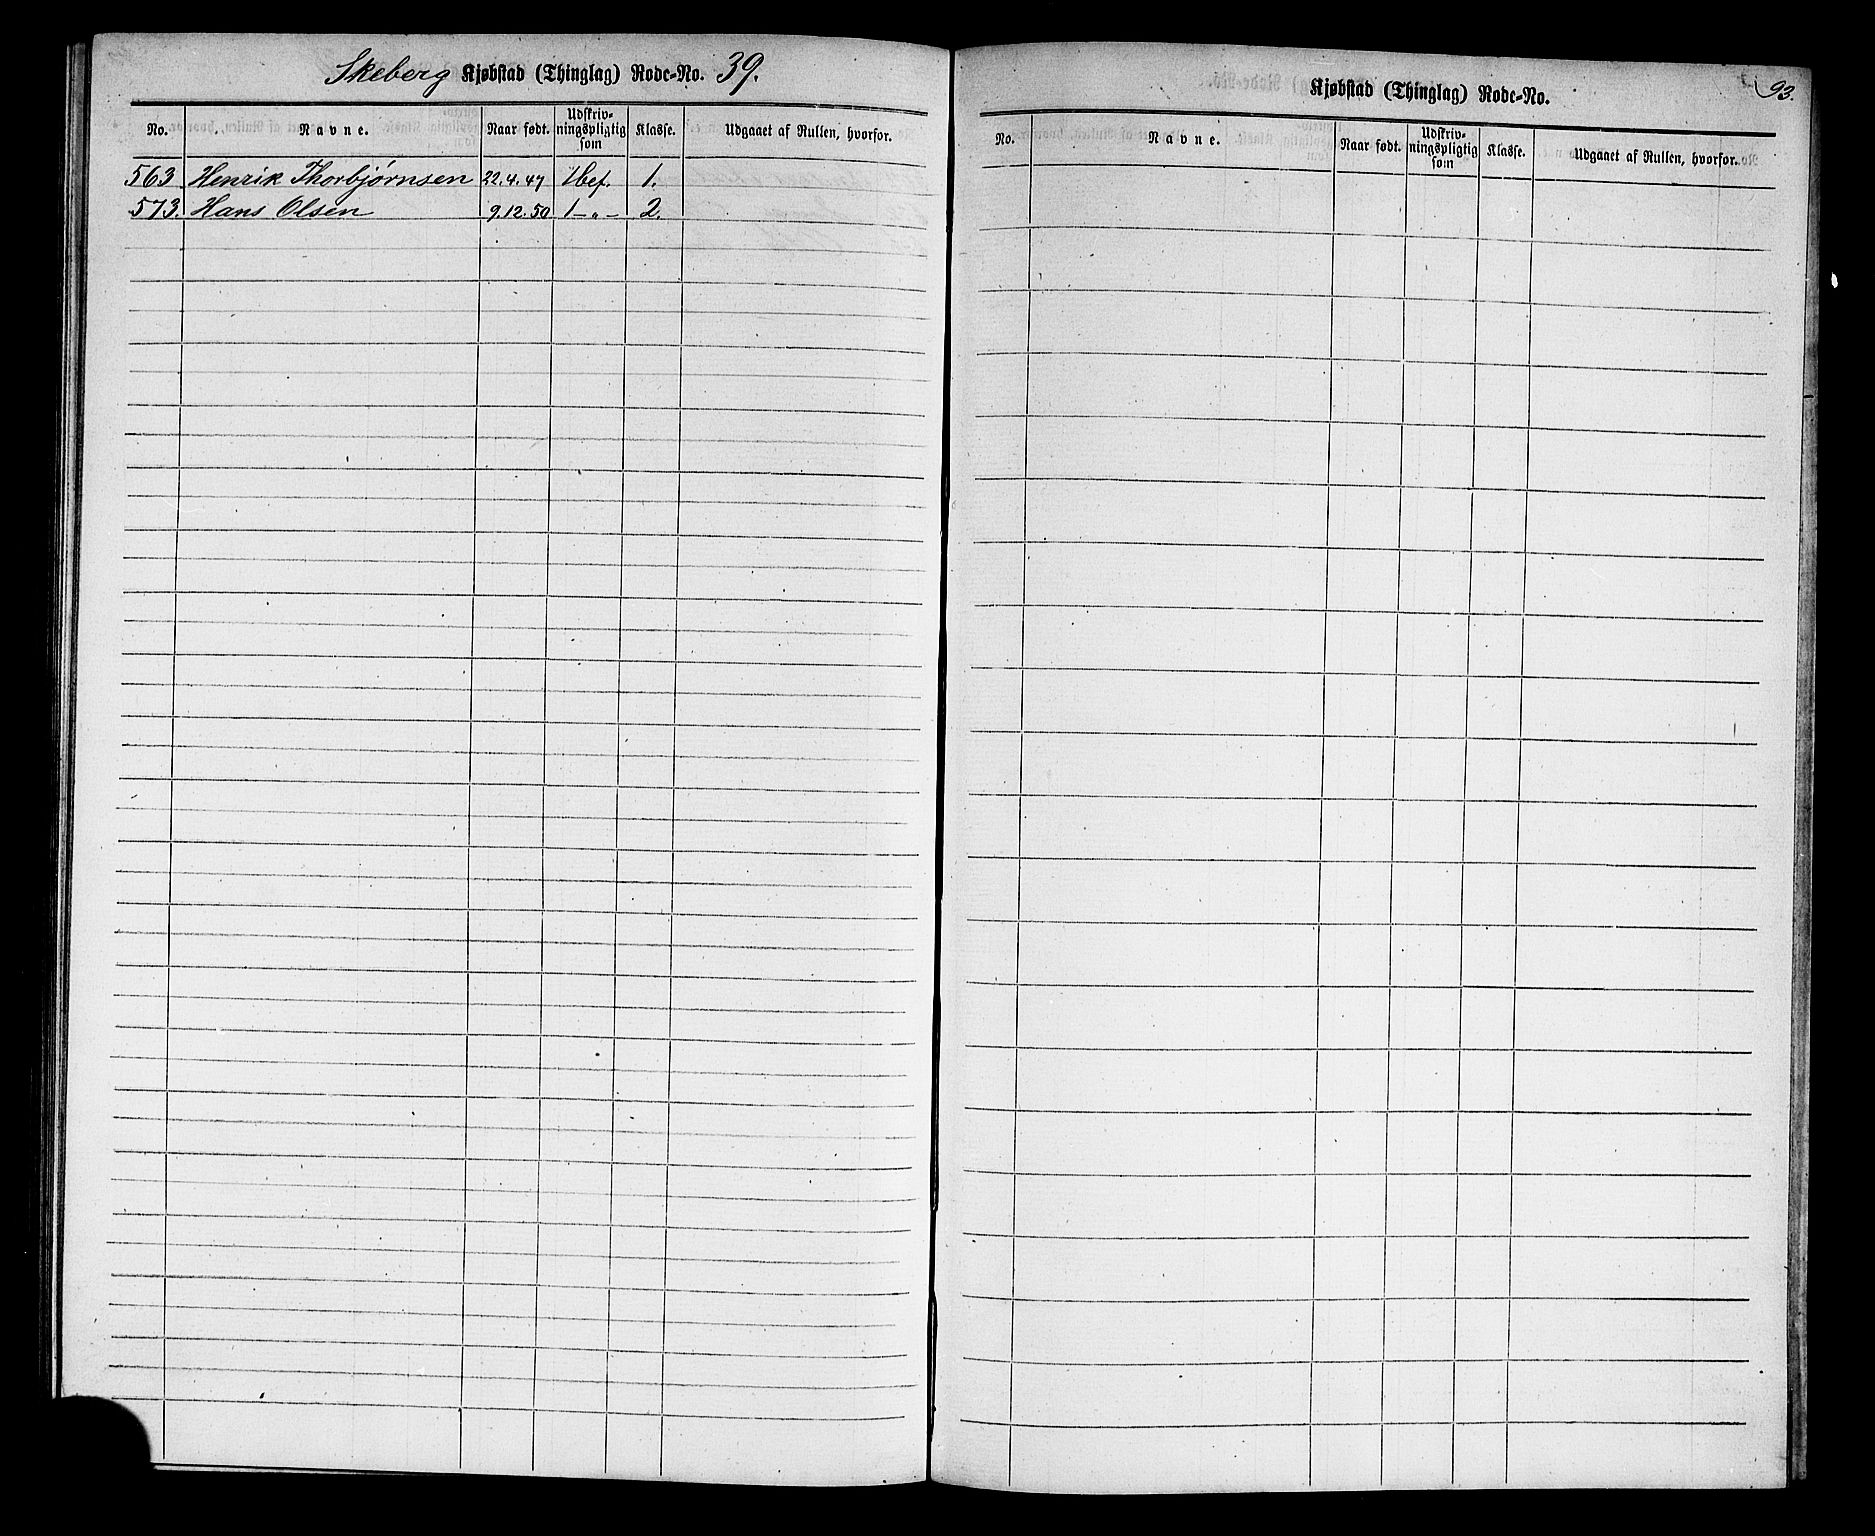 Skeberg Kjøbstad (Thinglag) Rode-No. 39.
No. Navne. Naar født. Udskriv-ningspligtig som Klasse. Udgaaet af Rullen, hvorfor.
563 Henrik Thorbjørnsen 22.4.47 1bef. 1.
573. Hans Olsen 9.12.50 1-"- 2.
93.
Kjøbstad (Thinglag) Rode-No.
No. Navne. Naar født. Udskriv-ningspligtig som Klasse. Udgaaet af Rullen, hvorfor.